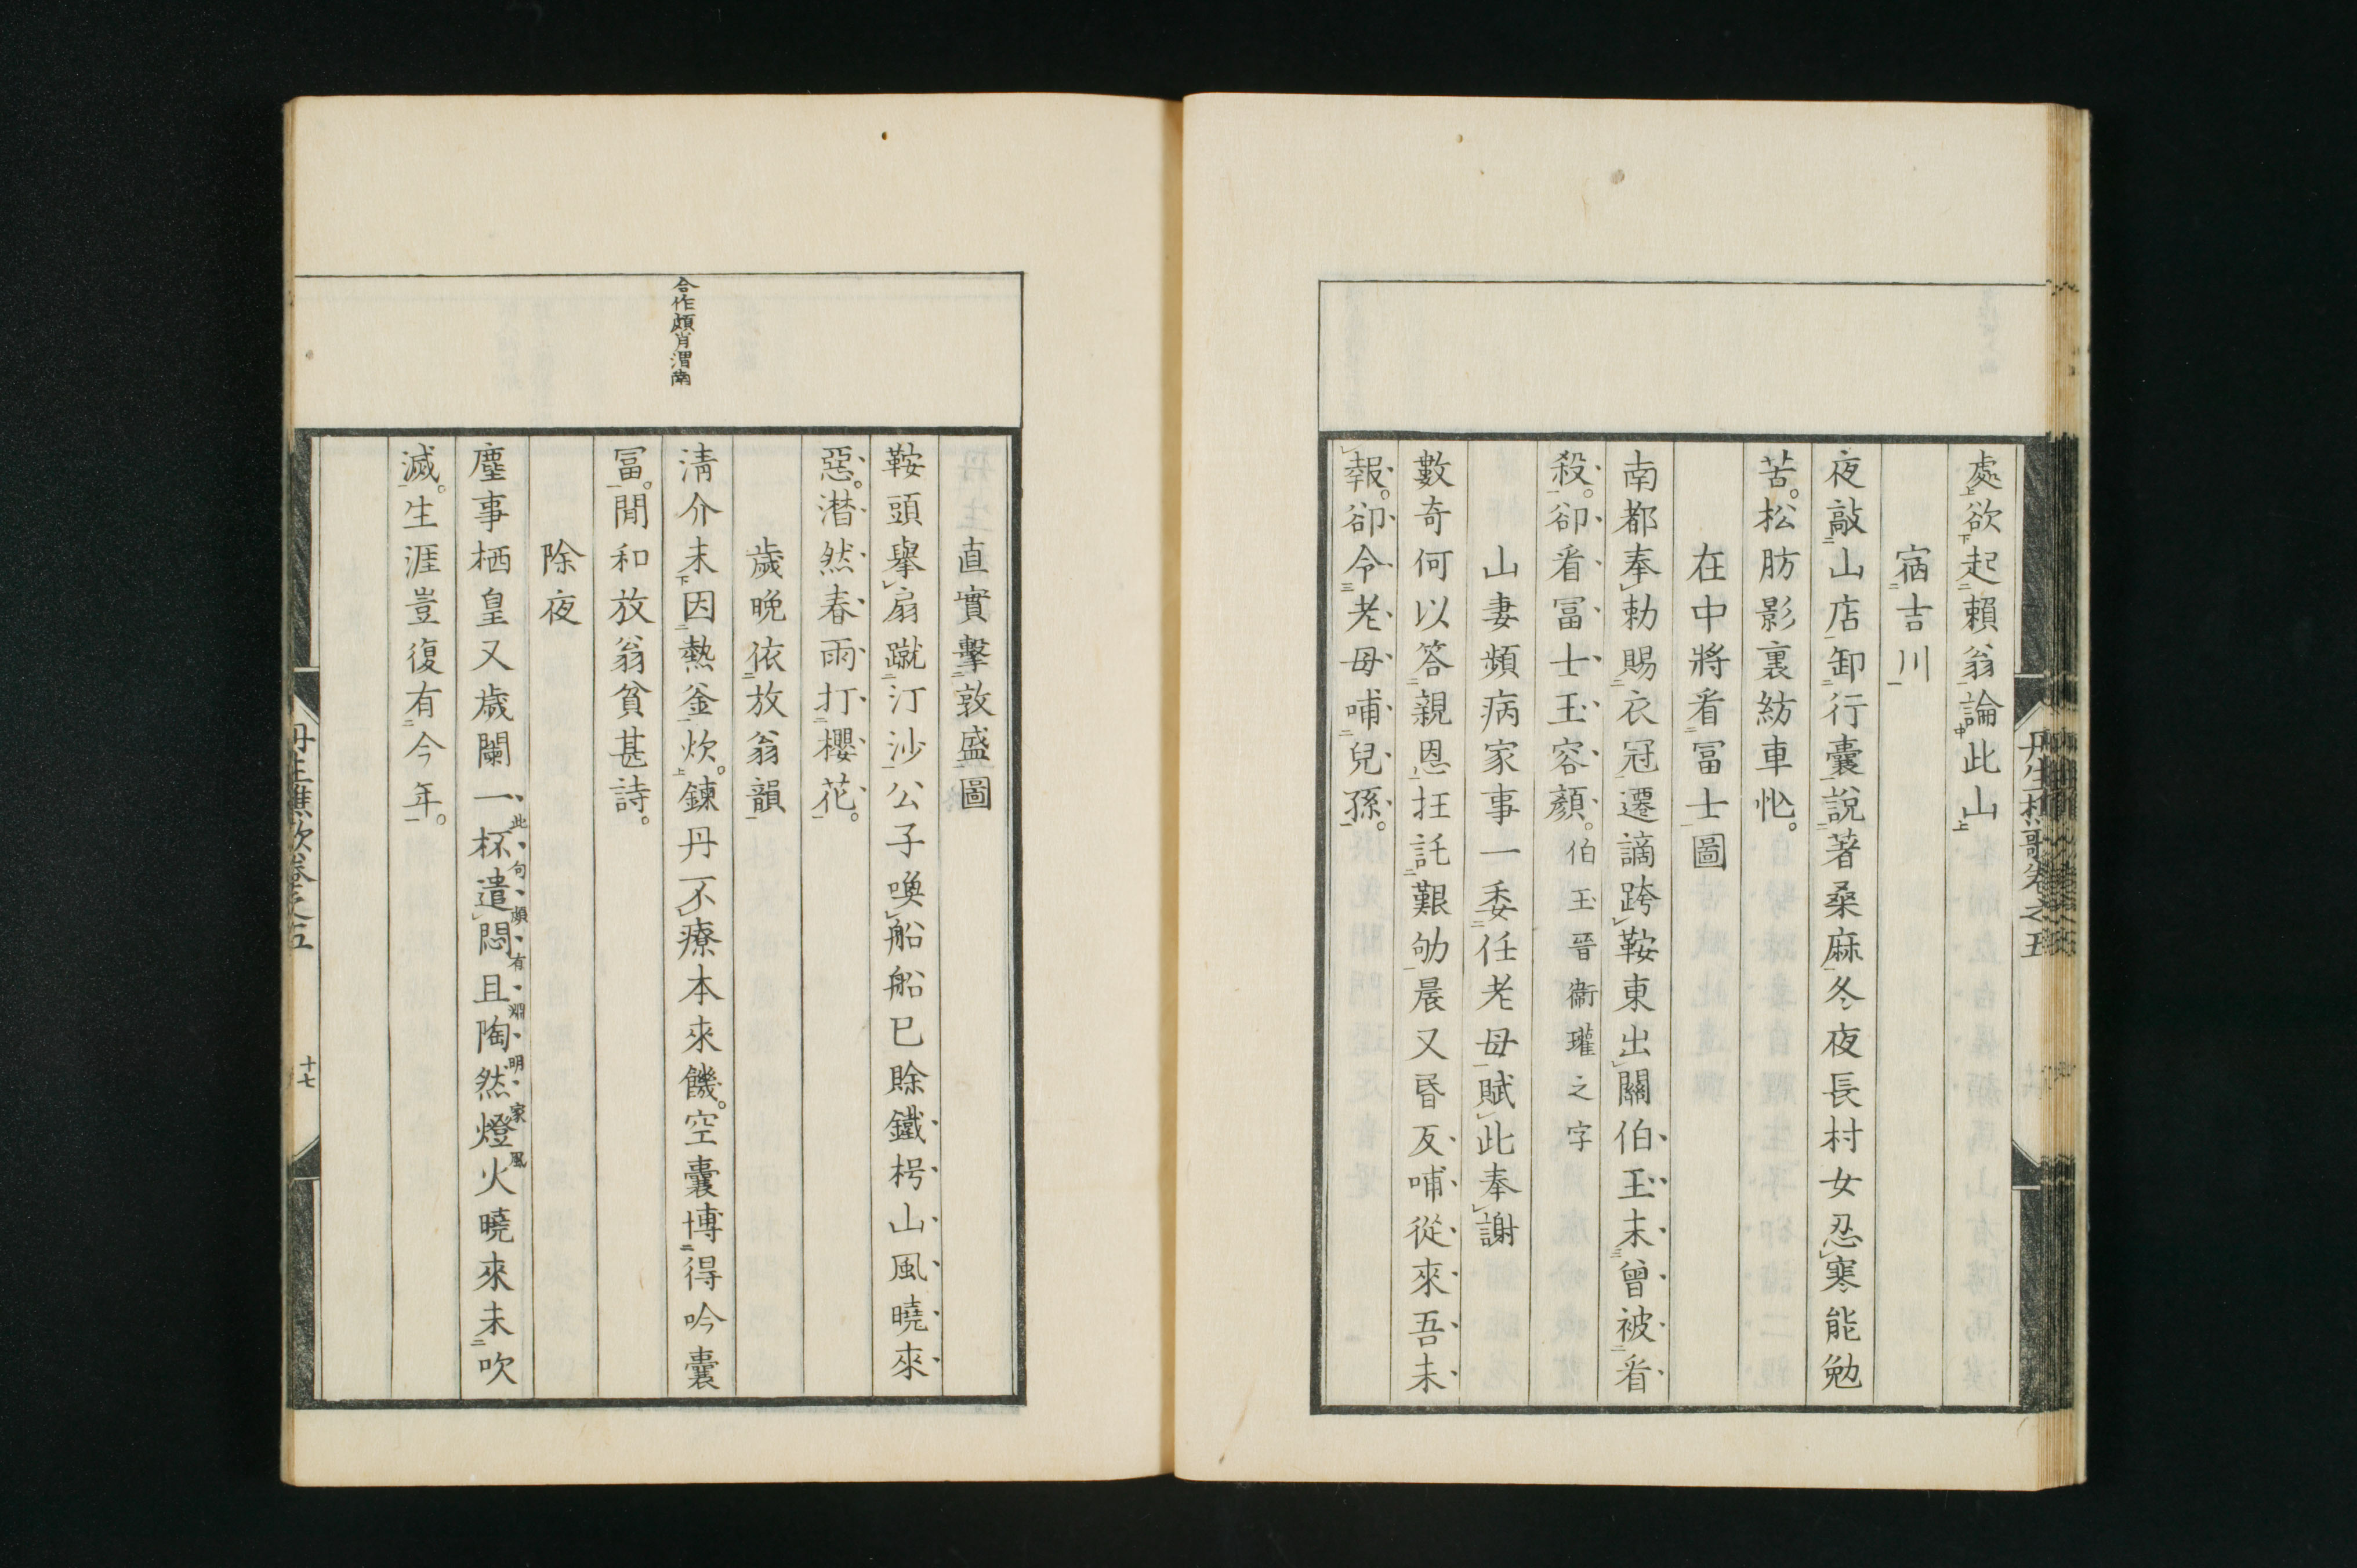 處欲起賴翁論此山
宿吉川
夜敲山店卸行囊說著桑麻冬夜長村女忍寒能勉
苦。松肪影裏紡車忙。
在中將看冨士圖
南都奉勅賜衣冠遷謫跨鞍東出關伯玉未曾被看
殺。卻看冨士玉容顏。伯玉晉衞瓘之字
山妻頻病家事一委任老母賦此奉謝
數奇何以答親恩抂託艱劬晨又昏反哺從來吾未
報。卻令老母哺兒孫。
丹生樵歌卷之五
直實擊敦盛圖
鞍頭擧扇蹴汀沙公子喚船船已賒鐵枴山風曉來
惡。潜然春雨打櫻花。
歲晚依放翁韻
合作頗肖渭南
清介未因熱釜炊。鍊丹不療本來饑。空囊博得吟囊
冨。閒和放翁貧甚詩。
除夜
塵事栖皇又歲闌一杯遣悶且陶然燈火曉來未吹
此句頗有淵明家風
滅。生涯豈復有今年。
丹生樵歌卷之五
十七